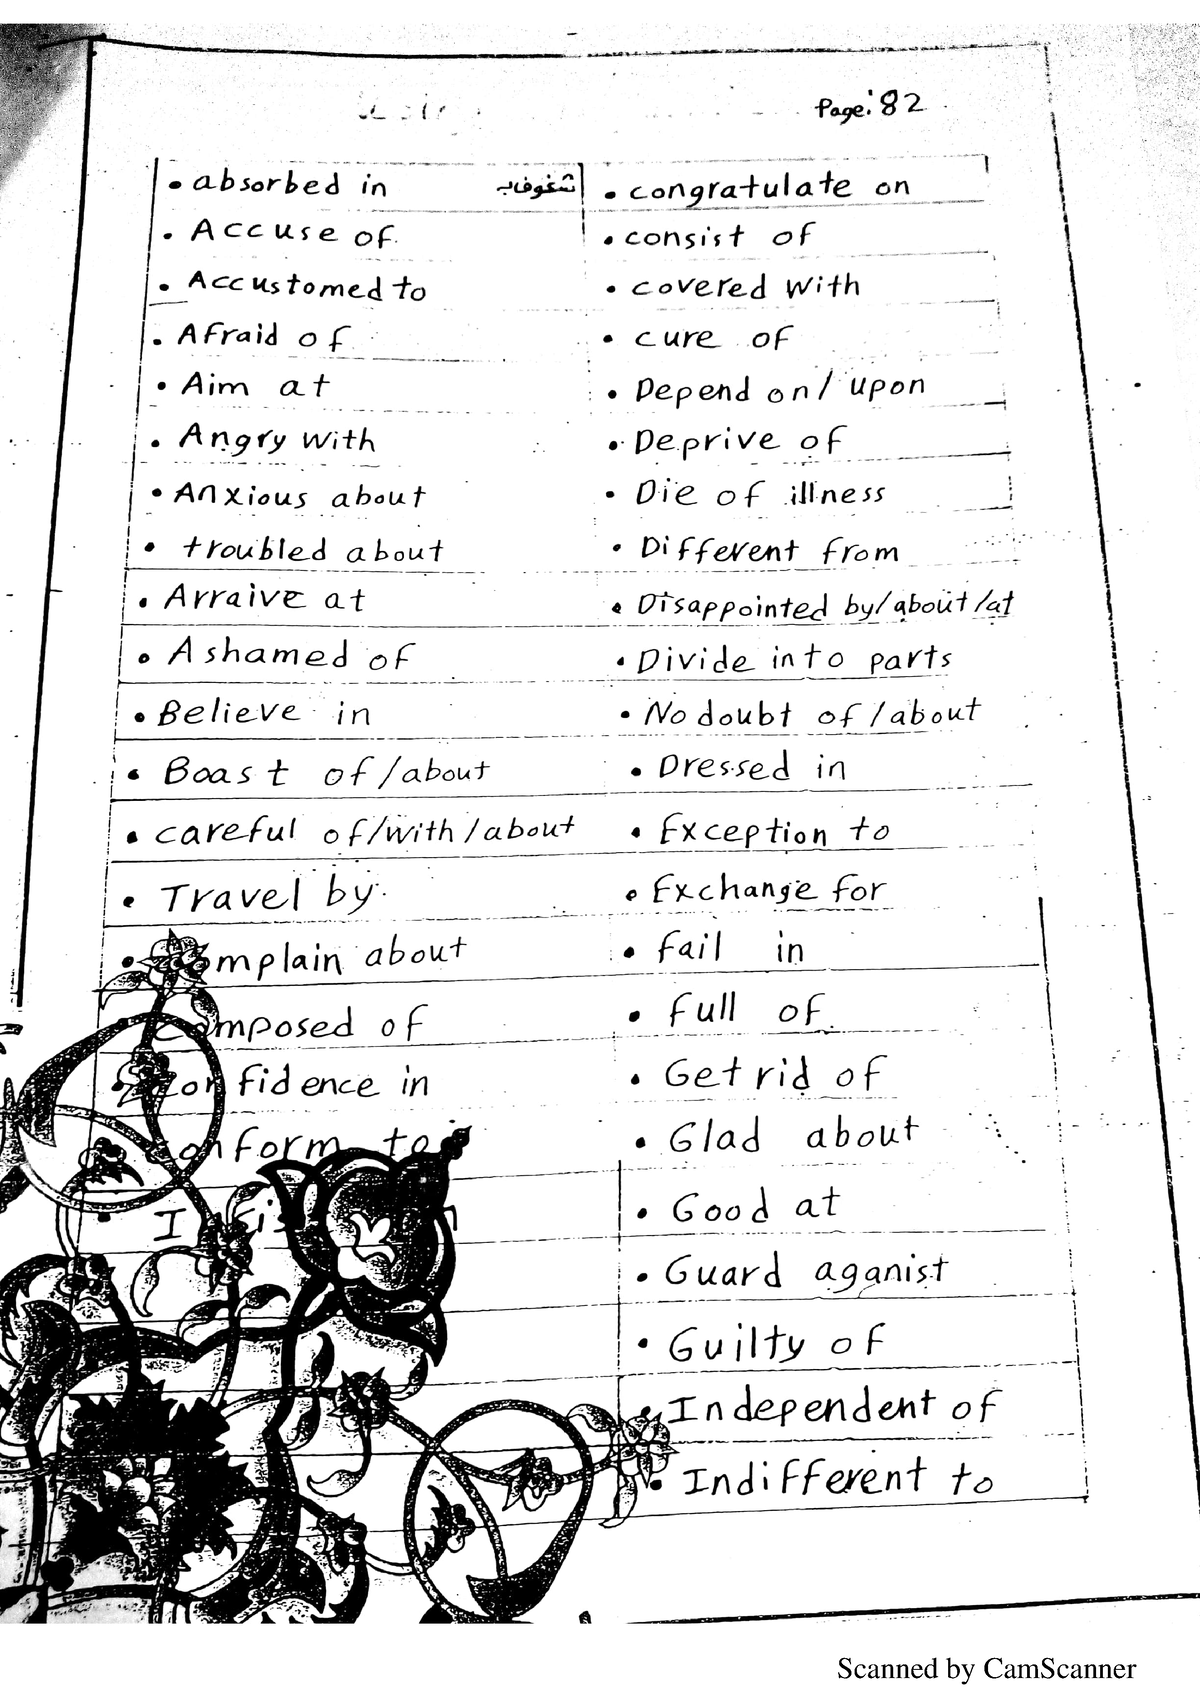 Page: 82
• absorbed in شغوف به
• Accuse of
• Accustomed to
• Afraid of
• Aim at
• Angry with
• Anxious about
• troubled about
• Arraive at
• Ashamed of
• Believe in
• Boast of/about
• careful of/with/about
• Travel by
• complain about
composed of
• confidence in
conform to
• congratulate on
• consist of
• covered with
• cure of
• Depend on/upon
• Deprive of
• Die of illness
• Different from
• Disappointed by/about/at
• Divide into parts
• No doubt of/about
• Dressed in
• Exception to
• Exchange for
• Fail in
• Full of
• Get rid of
• Glad about
• Good at
• Guard aganist
• Guilty of
• Independent of
• Indifferent to
Scanned by CamScanner